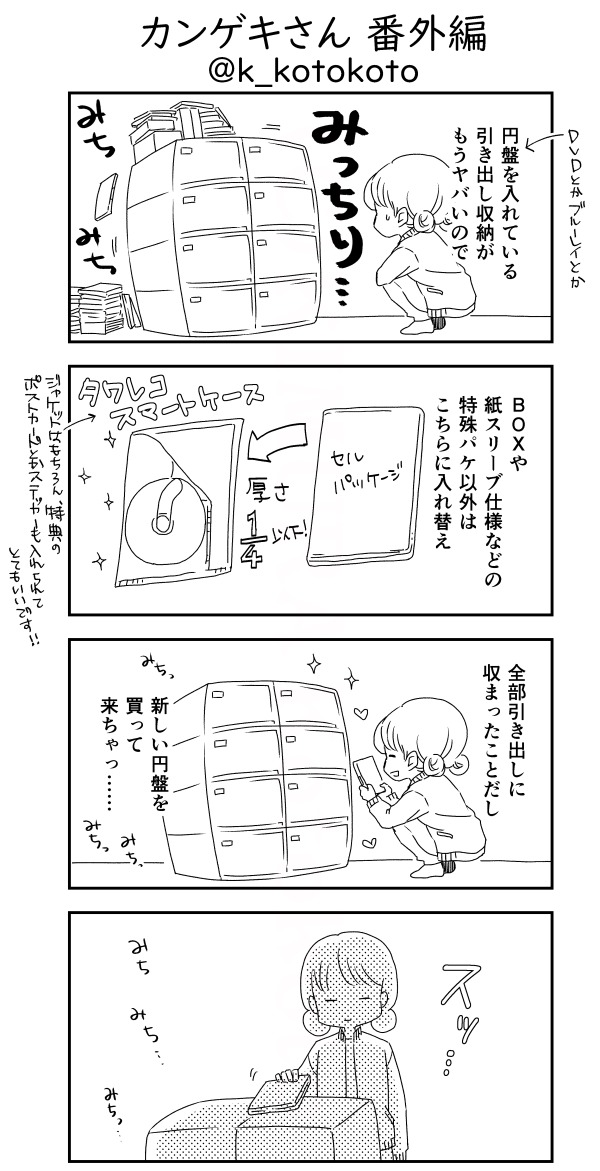 カンゲキさん 番外編
@k_kotokoto
円盤を入れている
引き出し収納が
もうヤバいので
DVDとかブルーレイとか
みっちり…
みち
みち
BOXや
紙スリーブ仕様などの
特殊パケ以外は
こちらに入れ替え
セル
パッケージ
厚さ
1/4
以下!
タワレコ
スマートケース
ジャケットはもちろん、特典の
ポストカードとかステッカーも入れられて
とてもいいです!!
全部引き出しに
収まったことだし
新しい円盤を
買って
来ちゃっ……
みちっ
みちっ
みちっ
スッ…
みち
みち…
みちっ